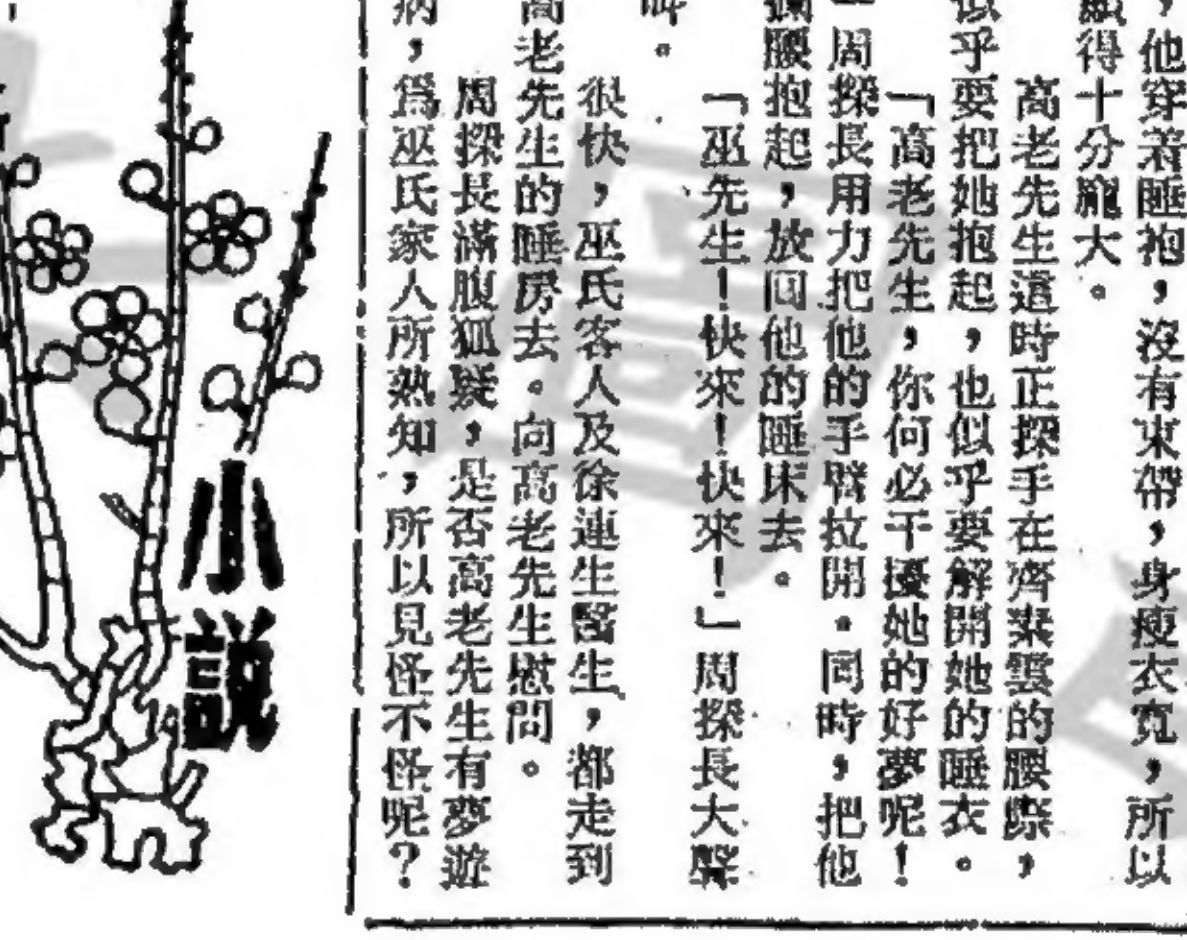 ,他穿着睡袍,沒有束帶,身瘦衣寬,所以
顯得十分寵大。
高老先生這時正探手在齊棠雲的腰際,
似乎要把她抱起,也似乎要解開她的睡衣。
「高老先生,你何必干擾她的好夢呢!
」周探長用力把他的手臂拉開。同時,把他
攔腰抱起,放回他的睡床去。
「巫先生!快來!快來!」周探長大聲
叫。
很快,巫氏客人及徐連生醫生,都走到
高老先生的睡房去。向高老先生慰問。
周探長滿腹狐疑,是否高老先生有夢遊
病,爲巫氏家人所熟知,所以見怪不怪呢?
小説